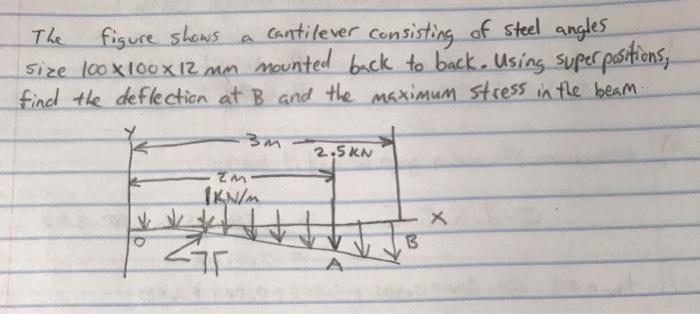 The figure shows a cantilever consisting of steel angles
size 100x100x12 mm mounted back to back. Using superpositions,
find the deflection at B and the maximum stress in the beam.
Y
3m
2.5KN
2m
1KN/m
X
O
B
A